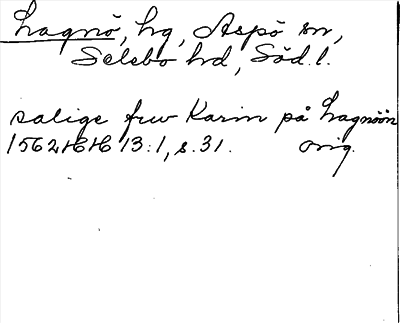 Lagnö, hg, Aspö sn,
Selebo hd, Söd. l.
salige frw Karin på Lagnöön
1562 HH 13:1, s. 31. orig.